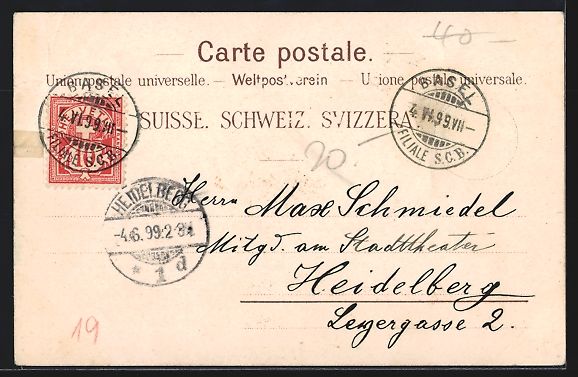 40 -
Carte postale.
Union postale universelle. – Weltpostverein – Unione postale universale.
SUISSE. SCHWEIZ. SVIZZERA.
BASEL
4.VI.99.VII–
FILIALE S.C.B.
BASEL
4.VI.99.VII–
FILIALE S.C.B.
10
20.–
HEIDELBERG
-4.6.99.2-3
* 1 d
Herrn Max Schmiedel
Mitgd. am Stadttheater
Heidelberg
Leyergasse 2.
19